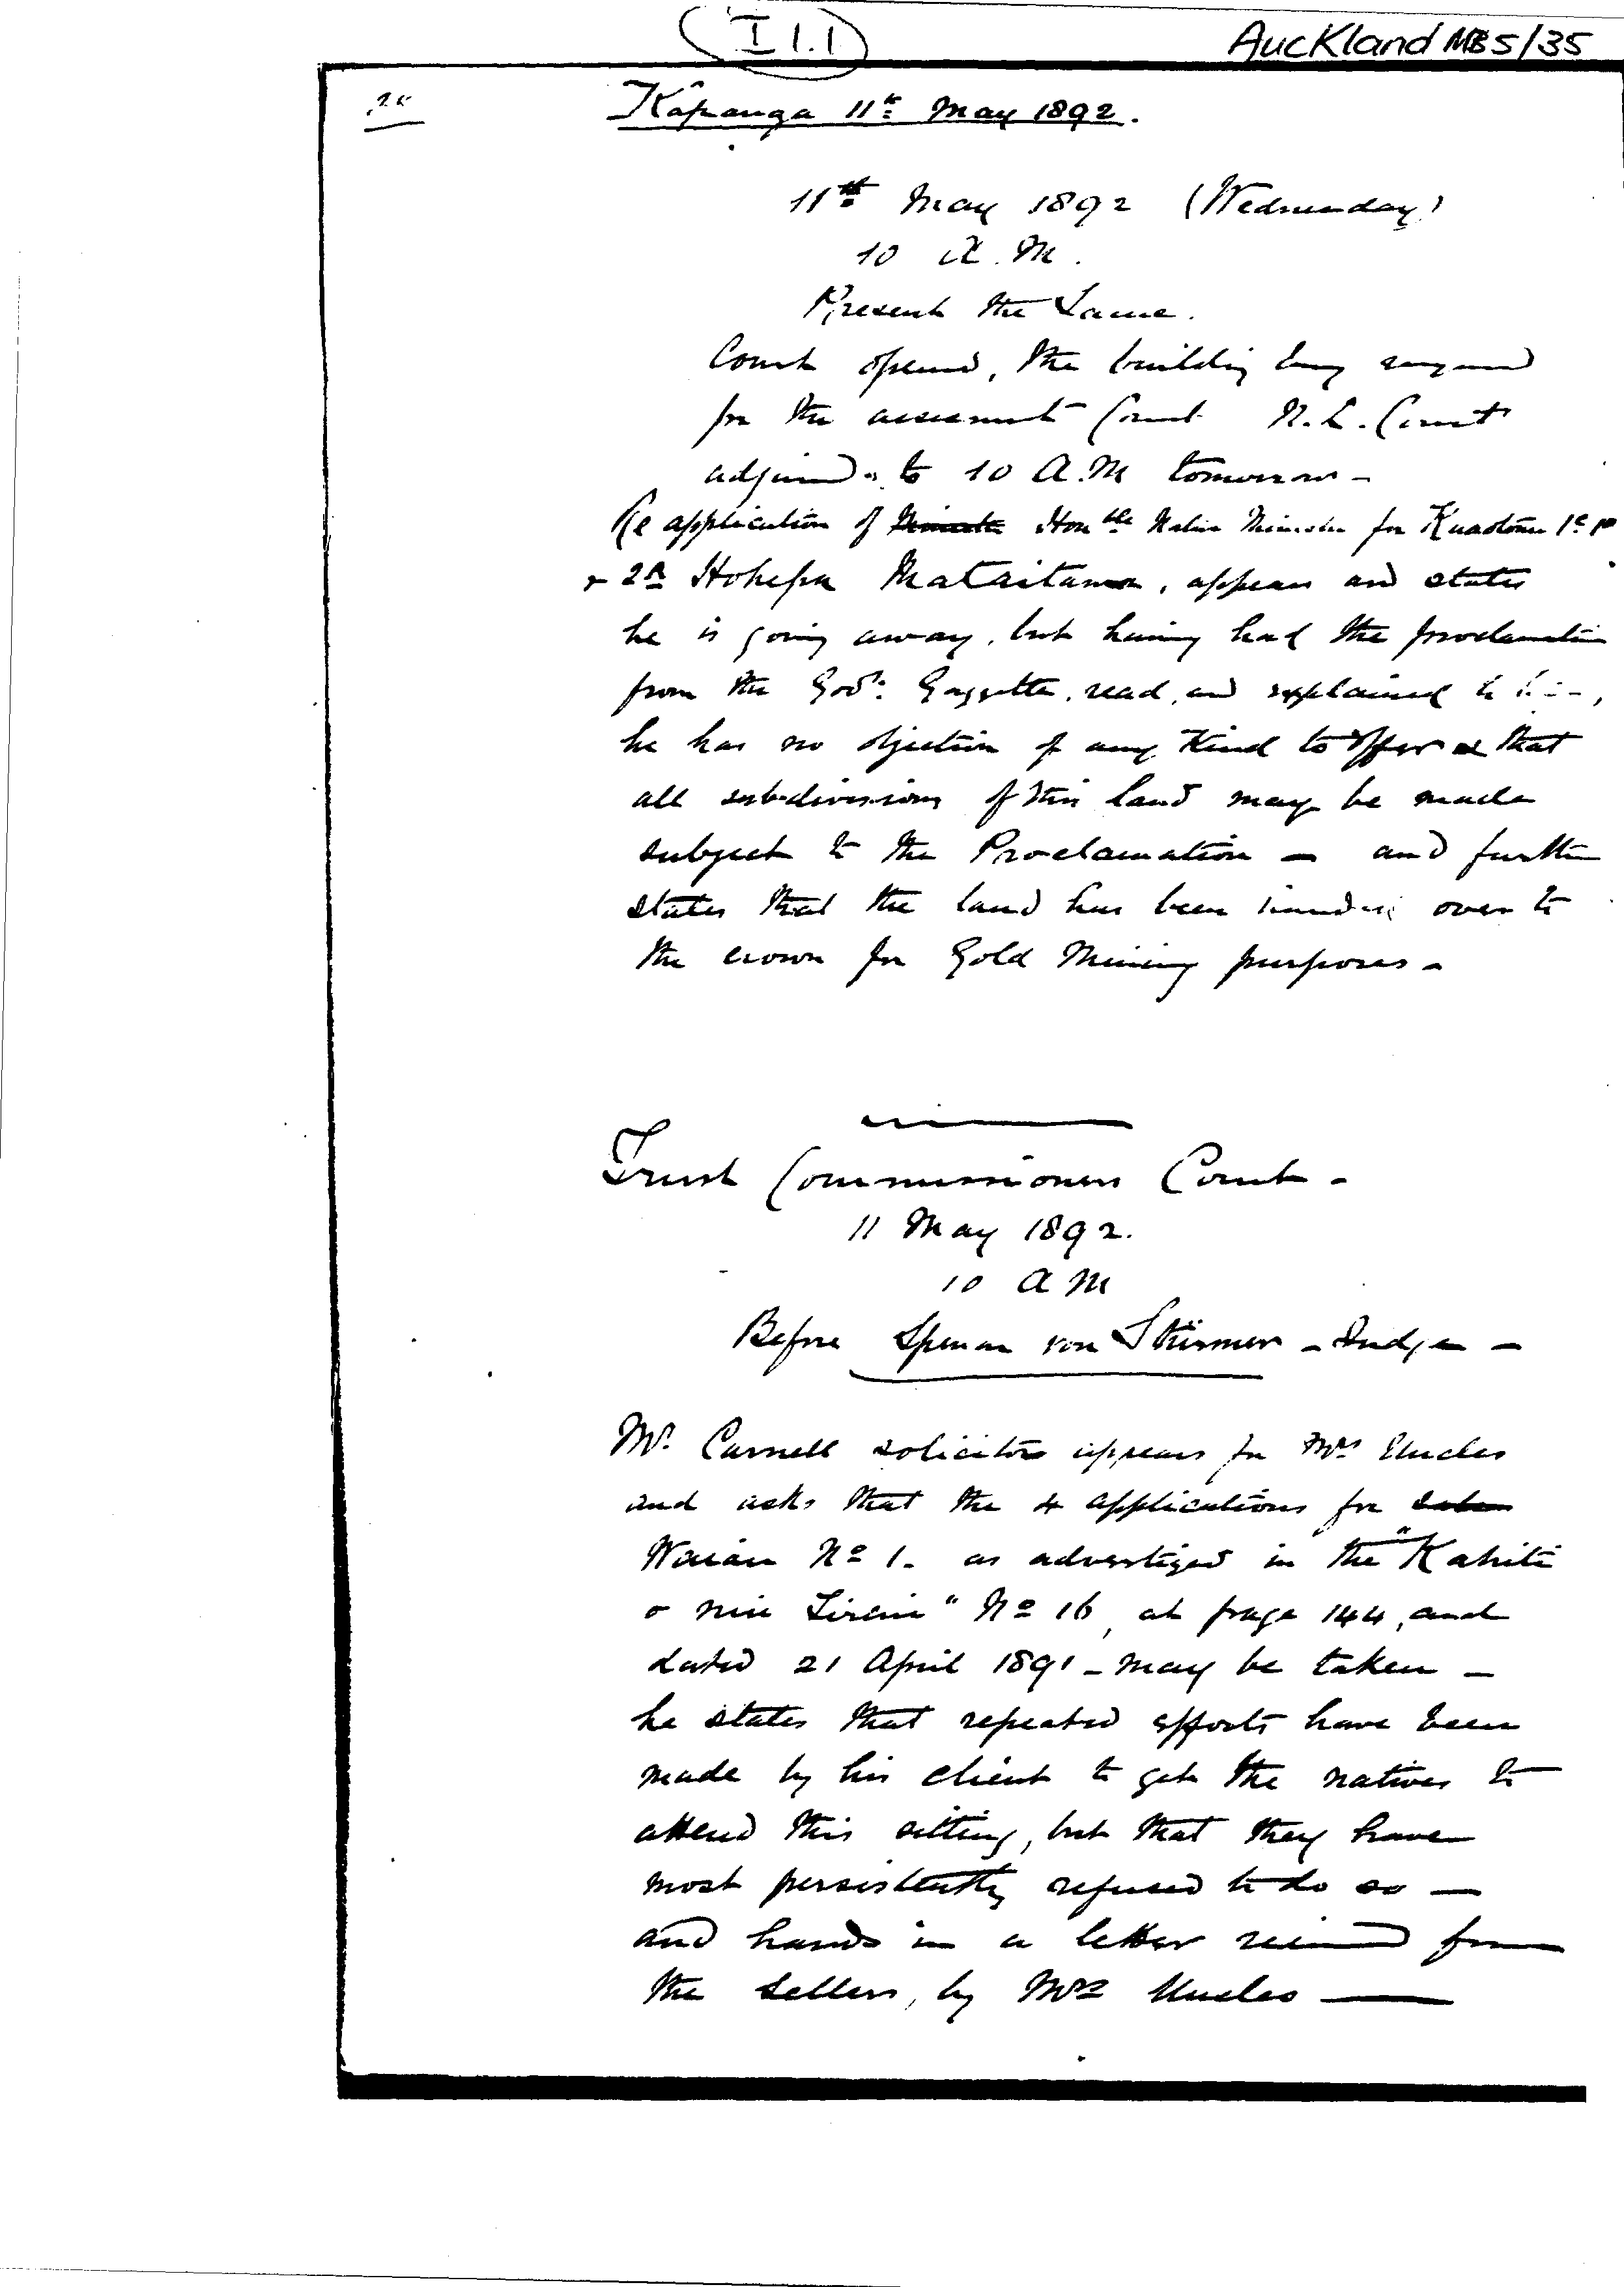 I 1.1
Auckland MB 5/35
Kapanga 11th May 1892.
11th May 1892 (Wednesday)
10 A.M.
Present the Same.
Court opened, the building being required
for the assessment Court N.L. Court
adjourned to 10 A.M tomorrow -
Re application of Honble Native Minister for Kuaotunu
& 2A Hohepa Mataitaua, appears and states
he is going away, but having had the proclamation
from the Govt. Gazzette, read, and explained to him,
he has no objection of any Kind to offer & that
all subdivisions of this land may be made
subject to the Proclamation - and further
states that the land has been handed over to
the crown for Gold Mining purposes -
Trust Commissioners Court -
11 May 1892.
10 A M
Before Spencer von Stürmer - Judge -
Mr. Carnell solicitor appears for Mrs Uncles
and asks that the 4 applications for
Waiau No 1. as advertized in the "Kahiti
o niu Tireni" No 16, at page 144, and
dated 21 April 1891 - may be taken -
he states that repeated efforts have been
made by his client to get the natives to
attend this sitting, but that they have
most persistently refused to do so -
and hands in a letter received from
the Sellers, by Mrs Uncles -